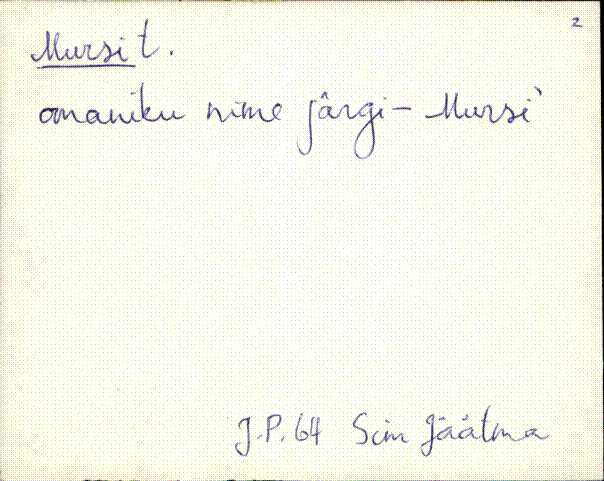 2
Mursi t.
omaniku nime järgi – Mursi
J.P. 64 Jäätma